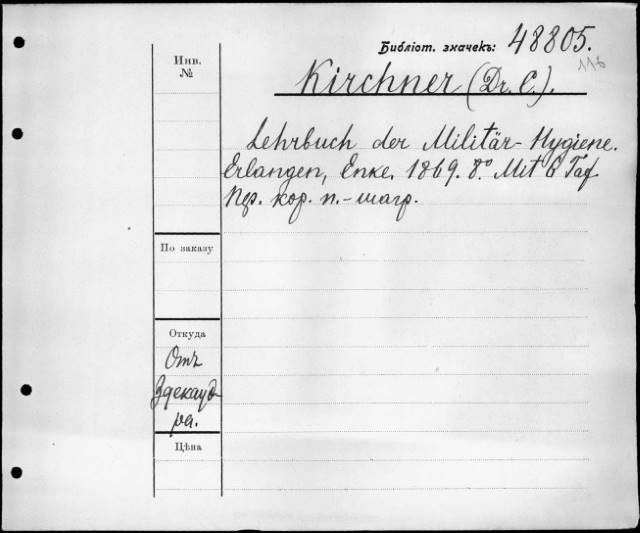 Библіот. значекъ: 48805.
116
Инв.
№
Kirchner (Dr. C.).
Lehrbuch der Militär-Hygiene.
Erlangen, Enke. 1869. 8.° Mit 6 Taf.
Пер. кор. п.-шагр.
По заказу
Откуда
Отъ
Здекауэ-
ра.
Цѣна